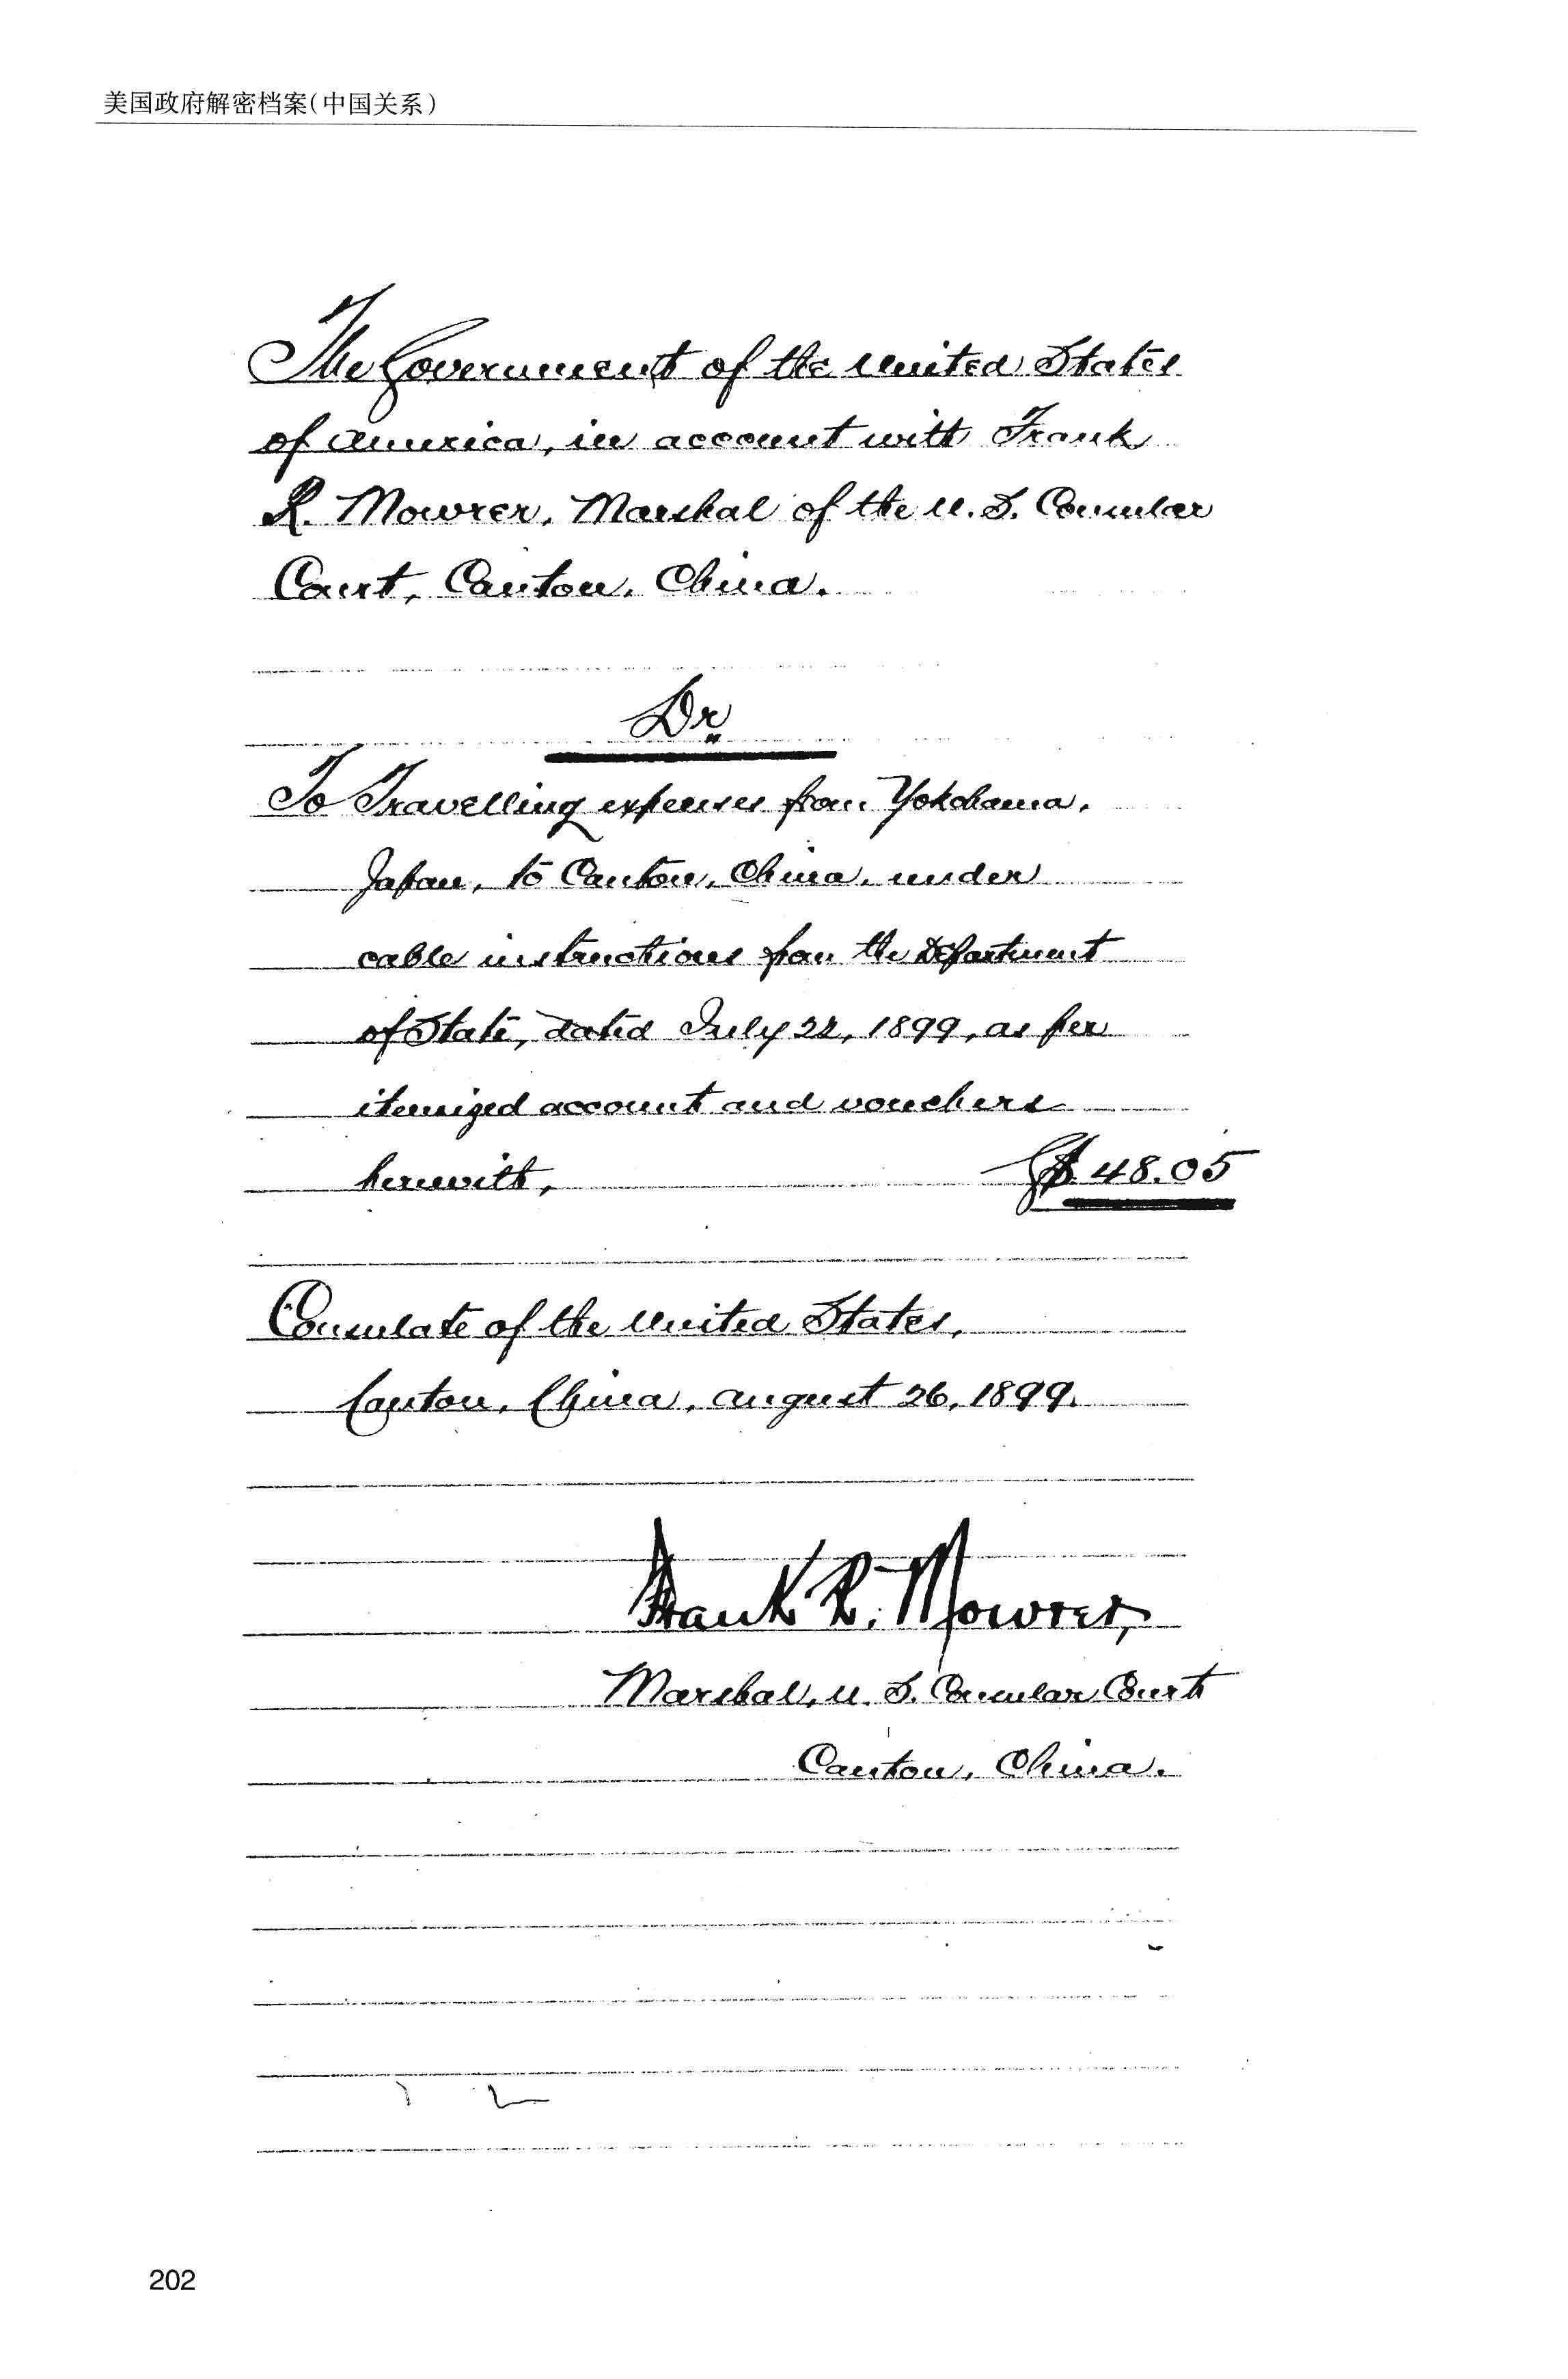 美国政府解密档案(中国关系)
The Government of the United States
of America, in account with Frank
R. Mowrer, Marshal of the U. S. Consular
Court, Canton, China.
Dr
To Travelling expenses from Yokohama,
Japan, to Canton, China, under
cable instructions from the Department
of State, dated July 22, 1899, as per
itemized account and vouchers
herewith, G$ 48.05
Consulate of the United States,
Canton, China, August 26, 1899.
Frank R. Mowrer,
Marshal, U. S. Consular Court
Canton, China.
202